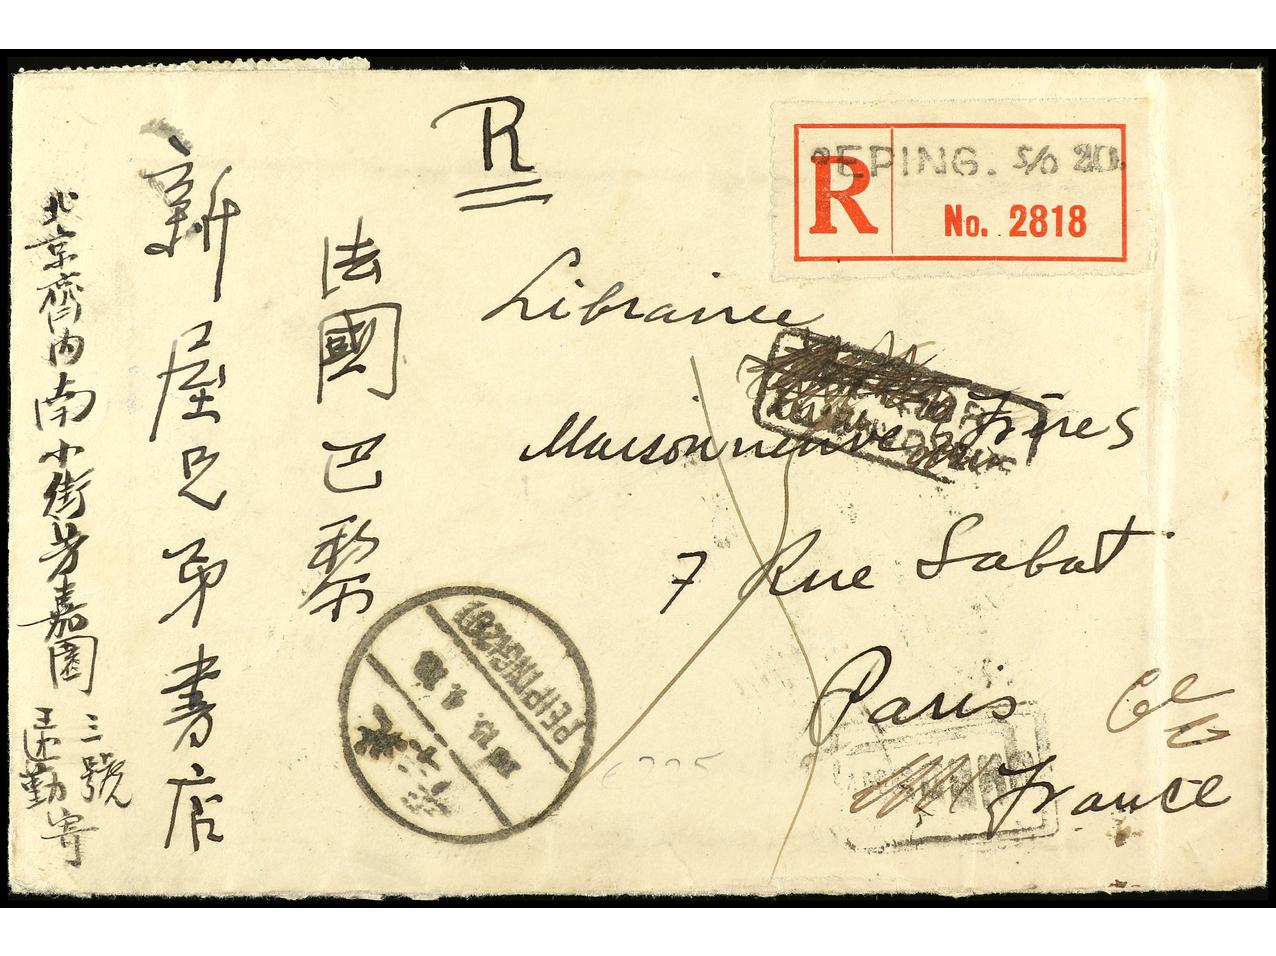 R
PEPING. S/O 20.
R
No. 2818
Librairie
Maisonneuve Frères
7 Rue Sabot
Paris
France
法國巴黎
新屋兄弟書店
北京齊內南小街芳嘉園
三號
王述勤寄
PEIPING(28)
6225